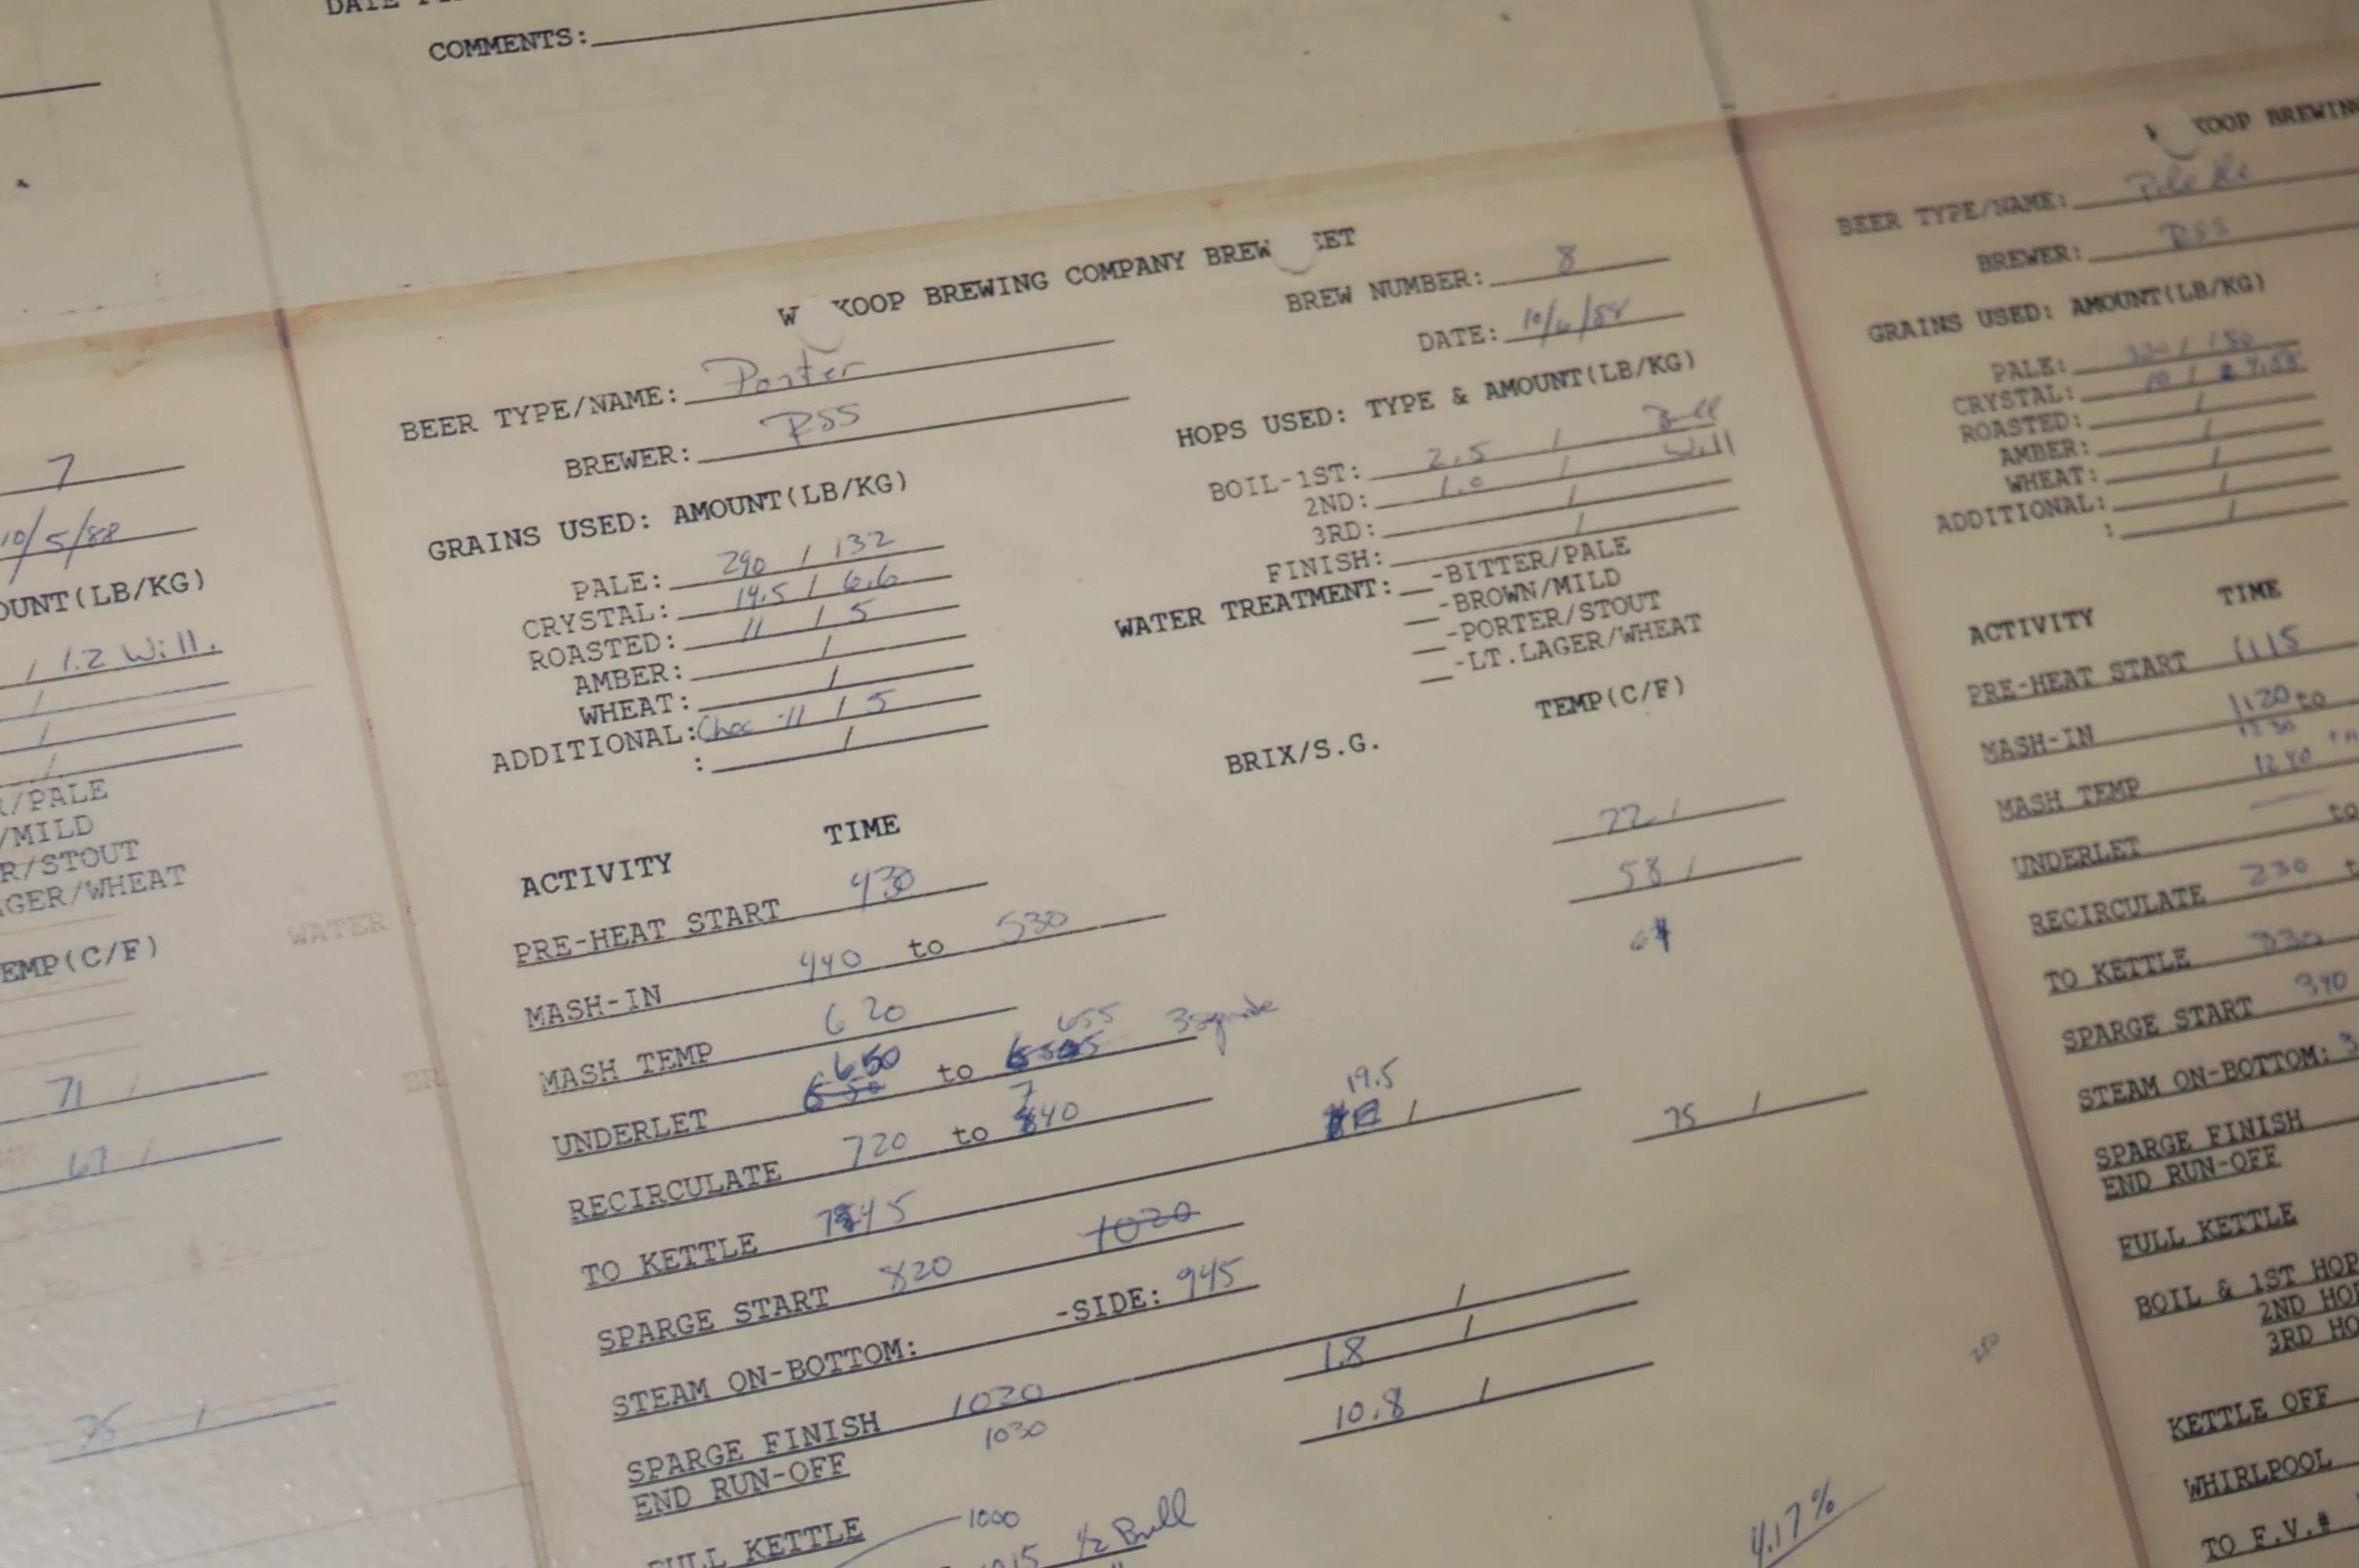 COMMENTS:
7
10/5/88
OUNT(LB/KG)
/ 1.2 Will.
/
/
/
R/PALE
/MILD
R/STOUT
AGER/WHEAT
EMP(C/F)
71 /
67 /
75 /
WATER
W KOOP BREWING COMPANY BREW EET
BEER TYPE/NAME: Porter
BREWER: RSS
BREW NUMBER: 8
DATE: 10/6/88
GRAINS USED: AMOUNT(LB/KG)
PALE: 290 / 132
CRYSTAL: 14.5 / 6.6
ROASTED: 11 / 5
AMBER: /
WHEAT: /
ADDITIONAL: Choc 11 / 5
: /
HOPS USED: TYPE & AMOUNT(LB/KG)
BOIL-1ST: 2.5 / Bull
2ND: 1.0 / Will
3RD: /
FINISH: /
WATER TREATMENT: -BITTER/PALE
-BROWN/MILD
-PORTER/STOUT
-LT.LAGER/WHEAT
ACTIVITY TIME BRIX/S.G. TEMP(C/F)
PRE-HEAT START 430 72 /
MASH-IN 440 to 530 58 /
MASH TEMP 620 64
UNDERLET 650 to 655
RECIRCULATE 720 to 740
TO KETTLE 745 19.5 / 75 /
SPARGE START 820 1020
STEAM ON-BOTTOM: -SIDE: 945
SPARGE FINISH 1020 /
END RUN-OFF 1030 1.8 /
FULL KETTLE 10.8 /
1000
1015 1/2 Bull
4.17%
KOOP BREWIN
BEER TYPE/NAME: Pale Ale
BREWER: RSS
GRAINS USED: AMOUNT(LB/KG)
PALE: 330 / 150
CRYSTAL: 10 / 4.55
ROASTED: /
AMBER: /
WHEAT: /
ADDITIONAL: /
: /
ACTIVITY TIME
PRE-HEAT START 1115
MASH-IN 1120 to
1230
MASH TEMP 1240
UNDERLET to
RECIRCULATE 230
TO KETTLE 330
SPARGE START 340
STEAM ON-BOTTOM: 3
SPARGE FINISH
END RUN-OFF
FULL KETTLE
BOIL & 1ST HOP
2ND HOP
3RD HO
250
KETTLE OFF
WHIRLPOOL
TO F.V.#